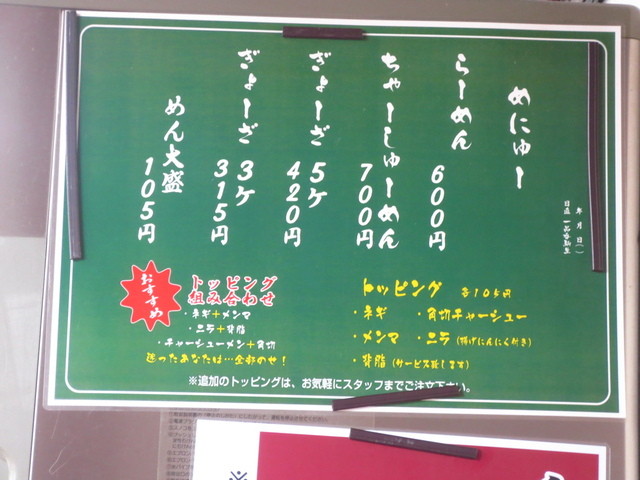 めにゅー
らーめん 600円
ちゃーしゅーめん 700円
ぎょーざ 5ケ 420円
ぎょーざ 3ケ 315円
めん大盛 105円
年 月 日( )
日直
トッピング 各105円
・ネギ ・角切チャーシュー
・メンマ ・ニラ(揚げにんにく付き)
・背脂(サービス致します)
おすすめ
トッピング
組み合わせ
・ネギ+メンマ
・ニラ+背脂
・チャーシューメン+角切
迷ったあなたは…全部のせ!
※追加のトッピングは、お気軽にスタッフまでご注文下さい。
※